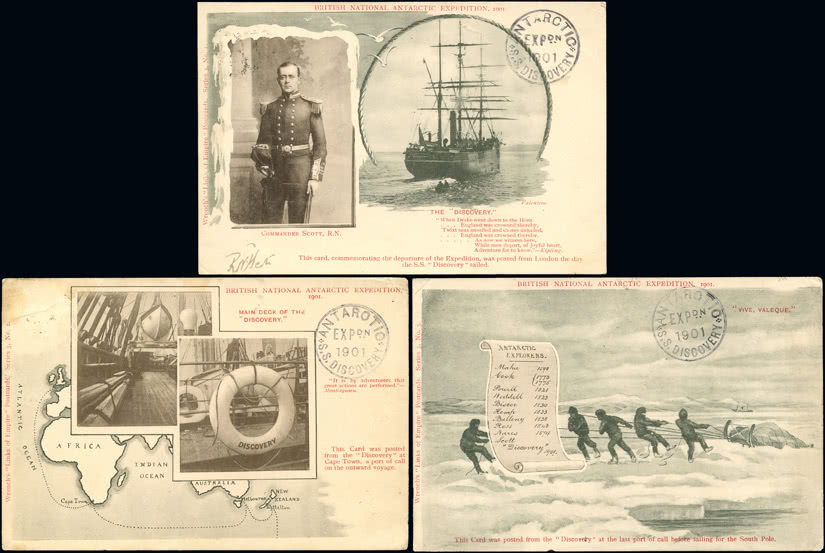 BRITISH NATIONAL ANTARCTIC EXPEDITION, 1901.
ANTARCTIC
EXPDN
1901
S.S. DISCOVERY
Wrench's "Links of Empire" Postcards, Series 2, No.
COMMANDER SCOTT, R.N.
Valentine
THE "DISCOVERY."
"When Drake went down to the Horn
England was crowned thereby,
As now we witness here,
While men depart, of joyful heart,
Adventure for to know."—Kipling.
This card, commemorating the departure of the Expedition, was posted from London the day
the S.S. "Discovery" sailed.
BRITISH NATIONAL ANTARCTIC EXPEDITION,
1901.
MAIN DECK OF THE
"DISCOVERY."
ANTARCTIC
EXPDN
1901
S.S. DISCOVERY
Wrench's "Links of Empire" Postcards, Series 2, No. 2.
DISCOVERY
"It is by adventures that
great actions are performed."—
Montesquieu.
This Card was posted
from the "Discovery" at
Cape Town, a port of call
on the outward voyage.
ATLANTIC
OCEAN
AFRICA
INDIAN
OCEAN
AUSTRALIA
Cape Town
Melbourne
NEW
ZEALAND
BRITISH NATIONAL ANTARCTIC EXPEDITION, 1901.
"VIVE, VALEQUE."
EXPDN
1901
S.S. DISCOVERY
Wrench's "Links of Empire" Postcards, Series 2, No.
ANTARCTIC
EXPLORERS.
Cook 1773
1775
Powell 1821
Weddell
Biscoe
Kemp 1833
Balleny
Ross
Nares
Scott
"Discovery"
1901.
This Card was posted from the "Discovery" at the last port of call before sailing for the South Pole.